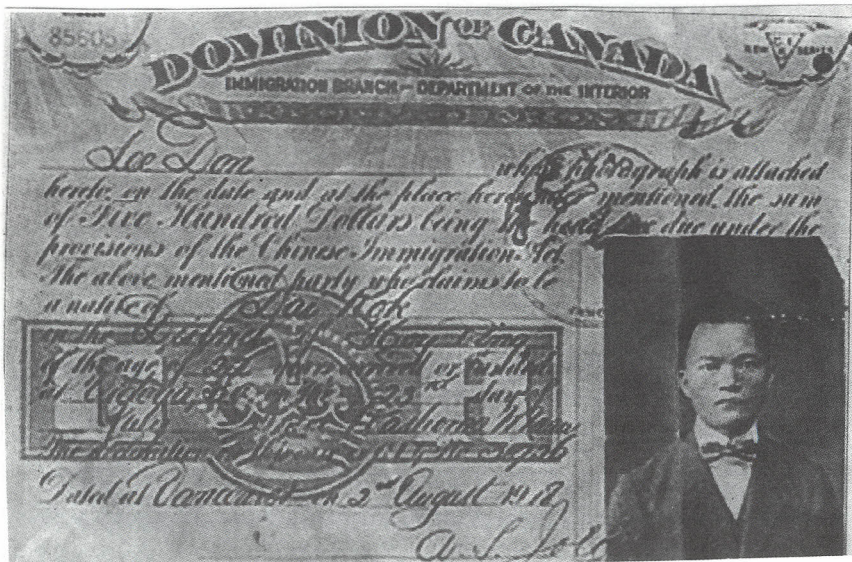 85605
DOMINION OF CANADA
NEW SERIES
IMMIGRATION BRANCH — DEPARTMENT OF THE INTERIOR
Lee Don whose photograph is attached
hereto, on the date and at the place hereunder mentioned, the sum
of Five Hundred Dollars being the head tax due under the
provisions of the Chinese Immigration Act.
The above mentioned party who claims to be
a native of
in the of
of the age of years arrived or landed
at on the 23rd day of
July
The declaration in this case is C.I.
Dated at Vancouver on 2nd August 1918